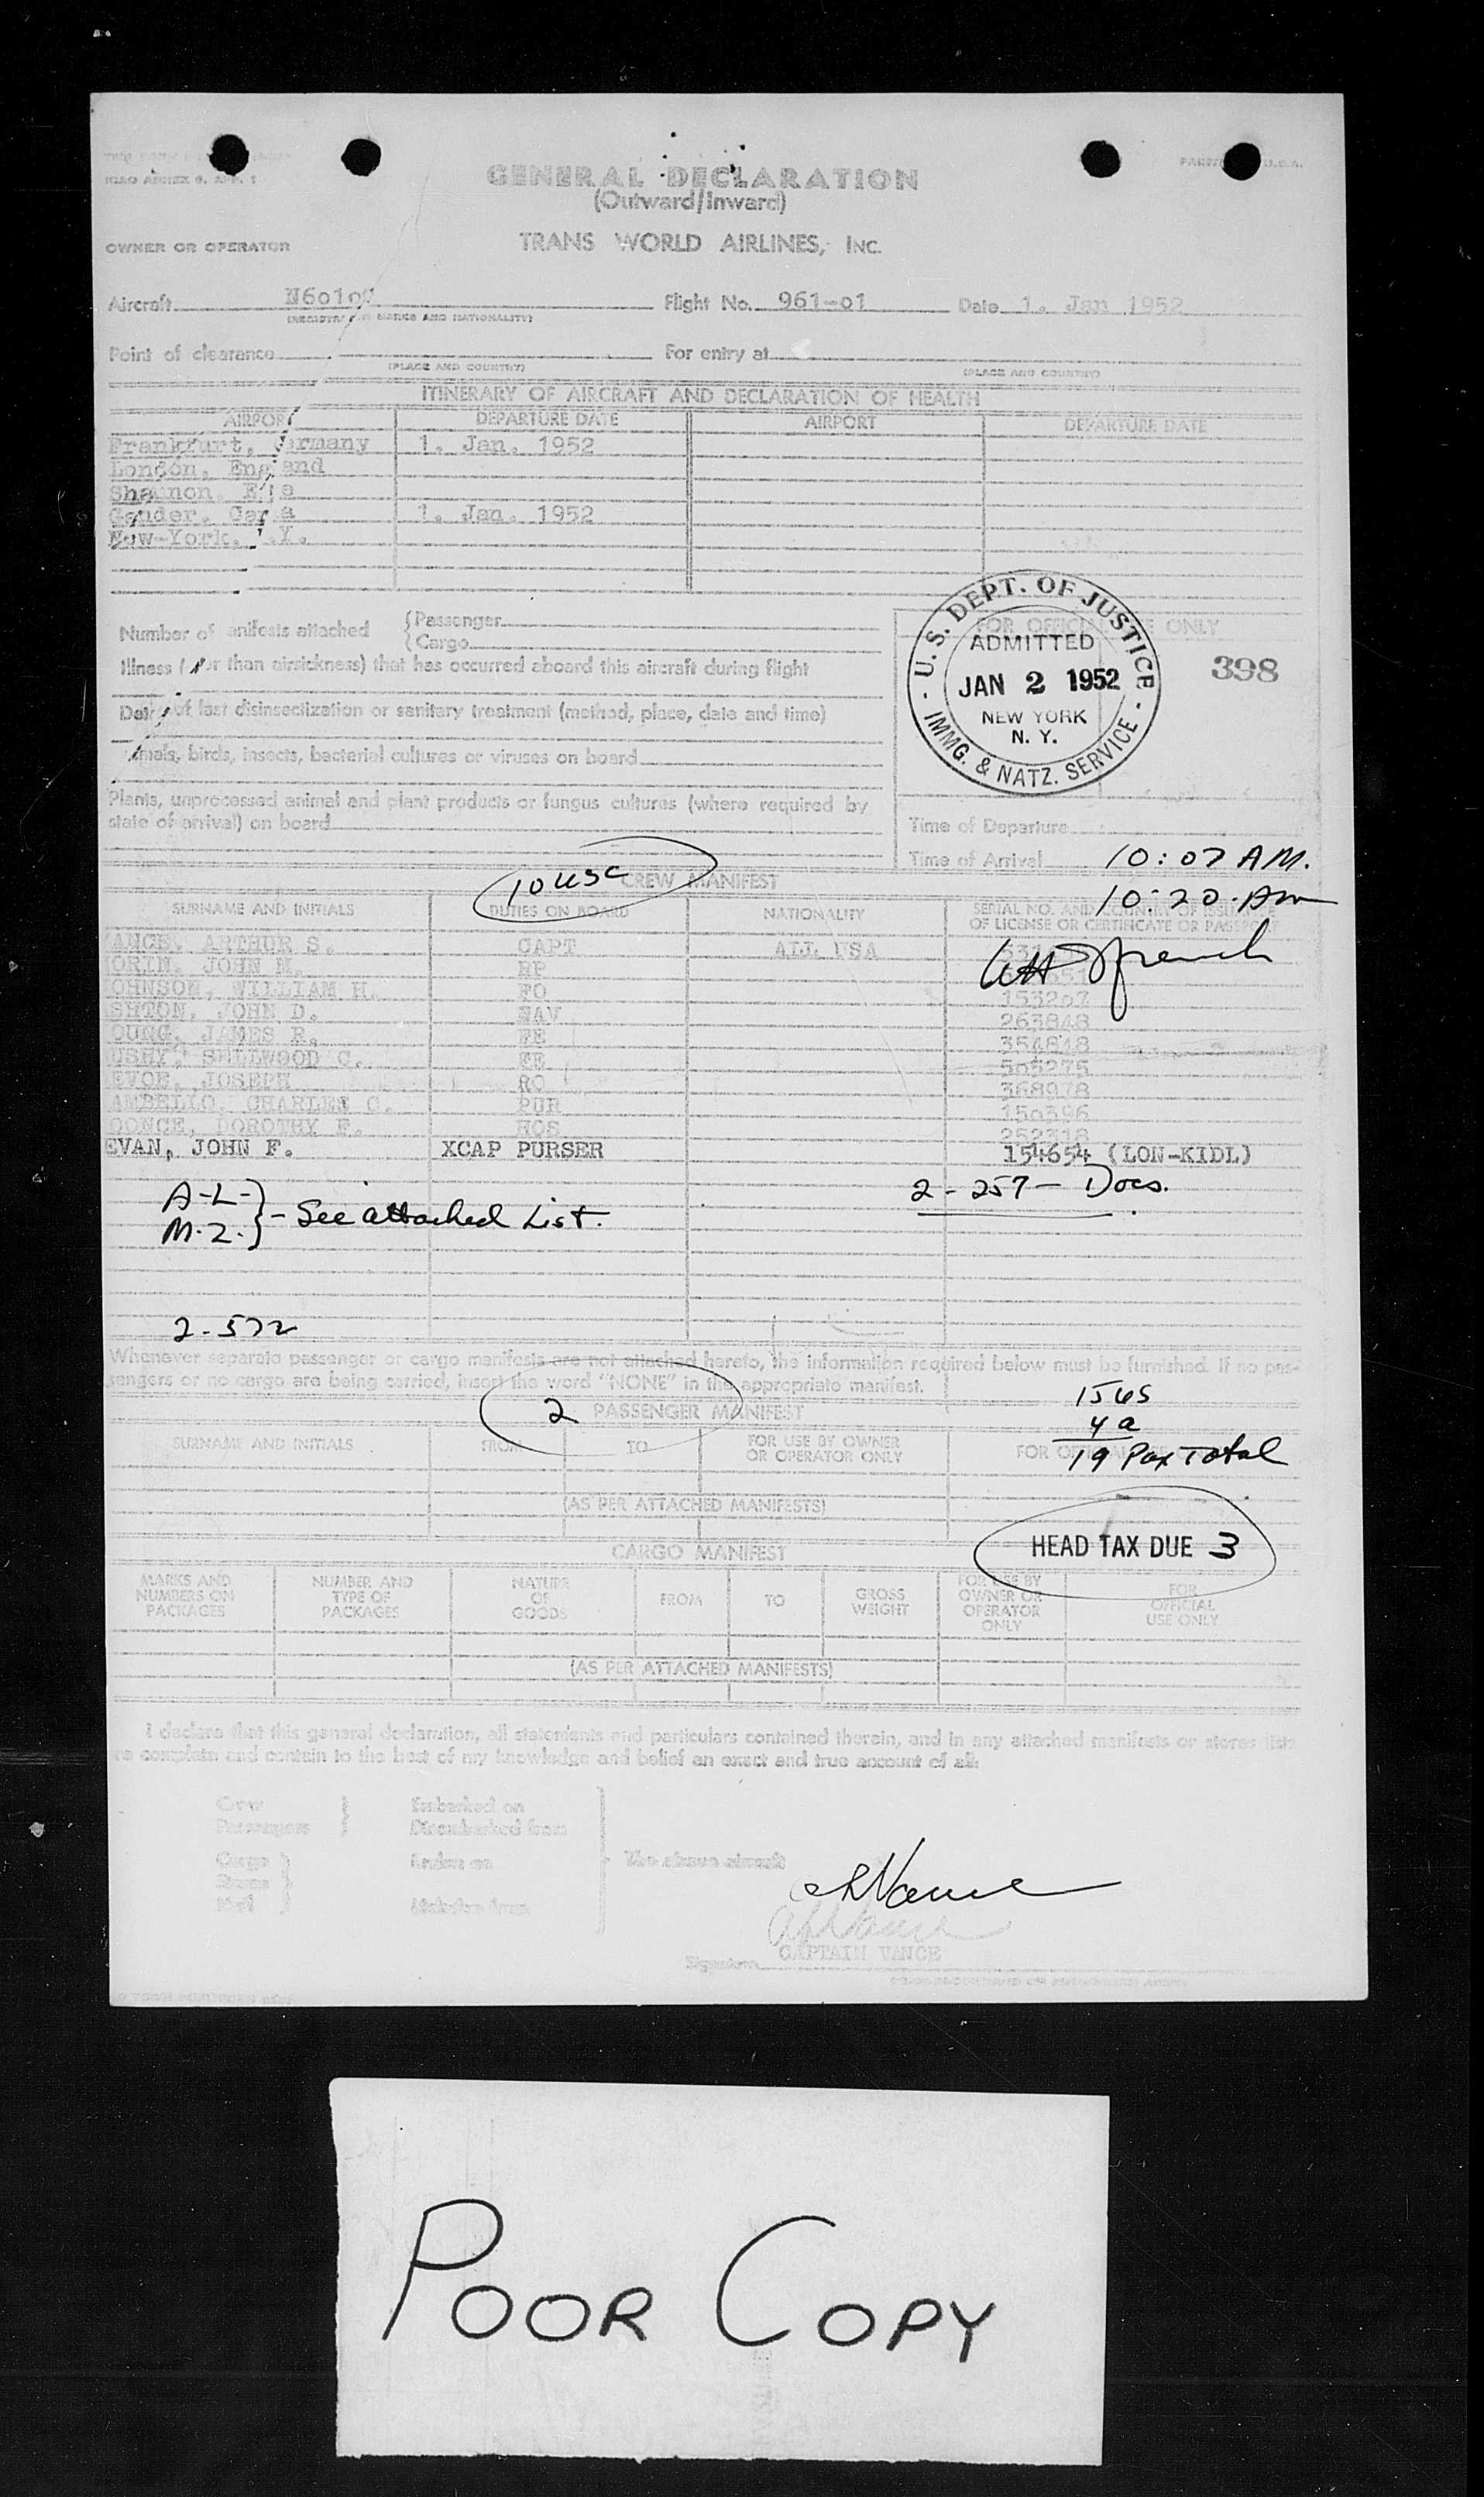 ICAO ANNEX 9, APP. 1
GENERAL DECLARATION
(Outward/Inward)
OWNER OR OPERATOR
TRANS WORLD AIRLINES, INC.
Aircraft N6010 Flight No. 961-01 Date 1. Jan 1952
(REGISTRY MARKS AND NATIONALITY)
Point of clearance For entry at
(PLACE AND COUNTRY) (PLACE AND COUNTRY)
ITINERARY OF AIRCRAFT AND DECLARATION OF HEALTH
AIRPORT DEPARTURE DATE AIRPORT DEPARTURE DATE
Frankfurt, Germany 1. Jan. 1952
London, England
Shannon,
Gander, 1. Jan. 1952
New-York, .Y.
Number of anifests attached {Passenger
{Cargo
FOR OFFICIAL USE ONLY
U.S. DEPT. OF JUSTICE
ADMITTED
JAN 2 1952
NEW YORK
N. Y.
IMMG. & NATZ. SERVICE
398
Illness (er than airsickness) that has occurred aboard this aircraft during flight
of last disinsectization or sanitary treatment (method, place, date and time)
imals, birds, insects, bacterial cultures or viruses on board
Plants, unprocessed animal and plant products or fungus cultures (where required by
state of arrival) on board
Time of Departure
Time of Arrival 10:07 AM.
10:20 Am
10 USC
CREW MANIFEST
SURNAME AND INITIALS DUTIES ON BOARD NATIONALITY SERIAL NO. AND COUNTRY OF ISSUANCE
OF LICENSE OR CERTIFICATE OR PASSPORT
ANCE, ARTHUR S. CAPT ALL USA
ORIN, JOHN M.
OHNSON, WILLIAM H. FO 153207
SHTON, JOHN D. NAV 263848
OUNG, JAMES R. FE 354818
USHY, SELLWOOD C. FE 505275
EVOE, JOSEPH RO 368978
AMBELLO, CHARLES C. PUR 150396
OONCE, DOROTHY E. HOS 252318
EVAN, JOHN F. XCAP PURSER 154654 (LON-KIDL)
A-L-} - See attached List.
M-Z-}
2 - 257 - Docs.
2-572
Whenever separate passenger or cargo manifests are not attached hereto, the information required below must be furnished. If no pas-
sengers or no cargo are being carried, insert the word "NONE" in the appropriate manifest.
15 US
4 a
19 Pax Total
2 PASSENGER MANIFEST
SURNAME AND INITIALS FROM TO FOR USE BY OWNER
OR OPERATOR ONLY
(AS PER ATTACHED MANIFESTS)
HEAD TAX DUE 3
CARGO MANIFEST
MARKS AND
NUMBERS ON
PACKAGES
NUMBER AND
TYPE OF
PACKAGES
NATURE
OF
GOODS
FROM
TO
GROSS
WEIGHT
FOR USE BY
OWNER OR
OPERATOR
ONLY
FOR
OFFICIAL
USE ONLY
(AS PER ATTACHED MANIFESTS)
I declare that this general declaration, all statements and particulars contained therein, and in any attached manifests or stores lists
re complete and contain to the best of my knowledge and belief an exact and true account of all:
Crew } Embarked on
Passengers } Disembarked from
Cargo } Laden on The above aircraft
Stores
Mail } Unladen from
Vance
CAPTAIN VANCE
Signature
POOR COPY